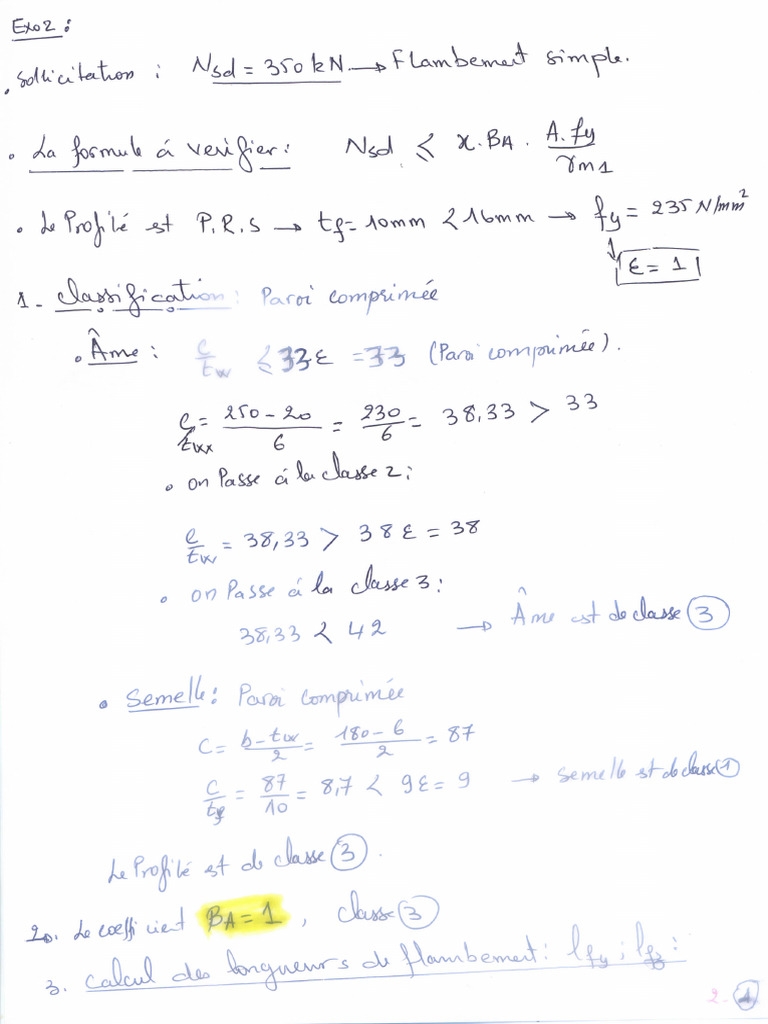 Exo2 :
. Sollicitation : Nsd = 350 kN → Flambement simple.
. La formule à verifier : Nsd ≤ χ . BA . A.fy / γm1
. Le Profilé est P.R.S → tf = 10mm < 16mm → fy = 235 N/mm²
↓
ε = 1
1 - classification : Paroi comprimée
. Âme : c/tw ≤ 33ε = 33 (Paroi comprimée).
c/tw = 250 - 20 / 6 = 230 / 6 = 38,33 > 33
. on Passe à la classe 2 :
c/tw = 38,33 > 38ε = 38
. on Passe à la classe 3 :
38,33 < 42 → Âme est de classe 3
. Semelle : Paroi comprimée
C = b - tw / 2 = 180 - 6 / 2 = 87
c/tf = 87 / 10 = 8,7 < 9ε = 9 → semelle est de classe 1
Le Profilé est de classe 3 .
2. Le coefficient BA = 1 , classe 3
3. calcul des longueurs de flambement : lfy ; lfz :
2 - 1